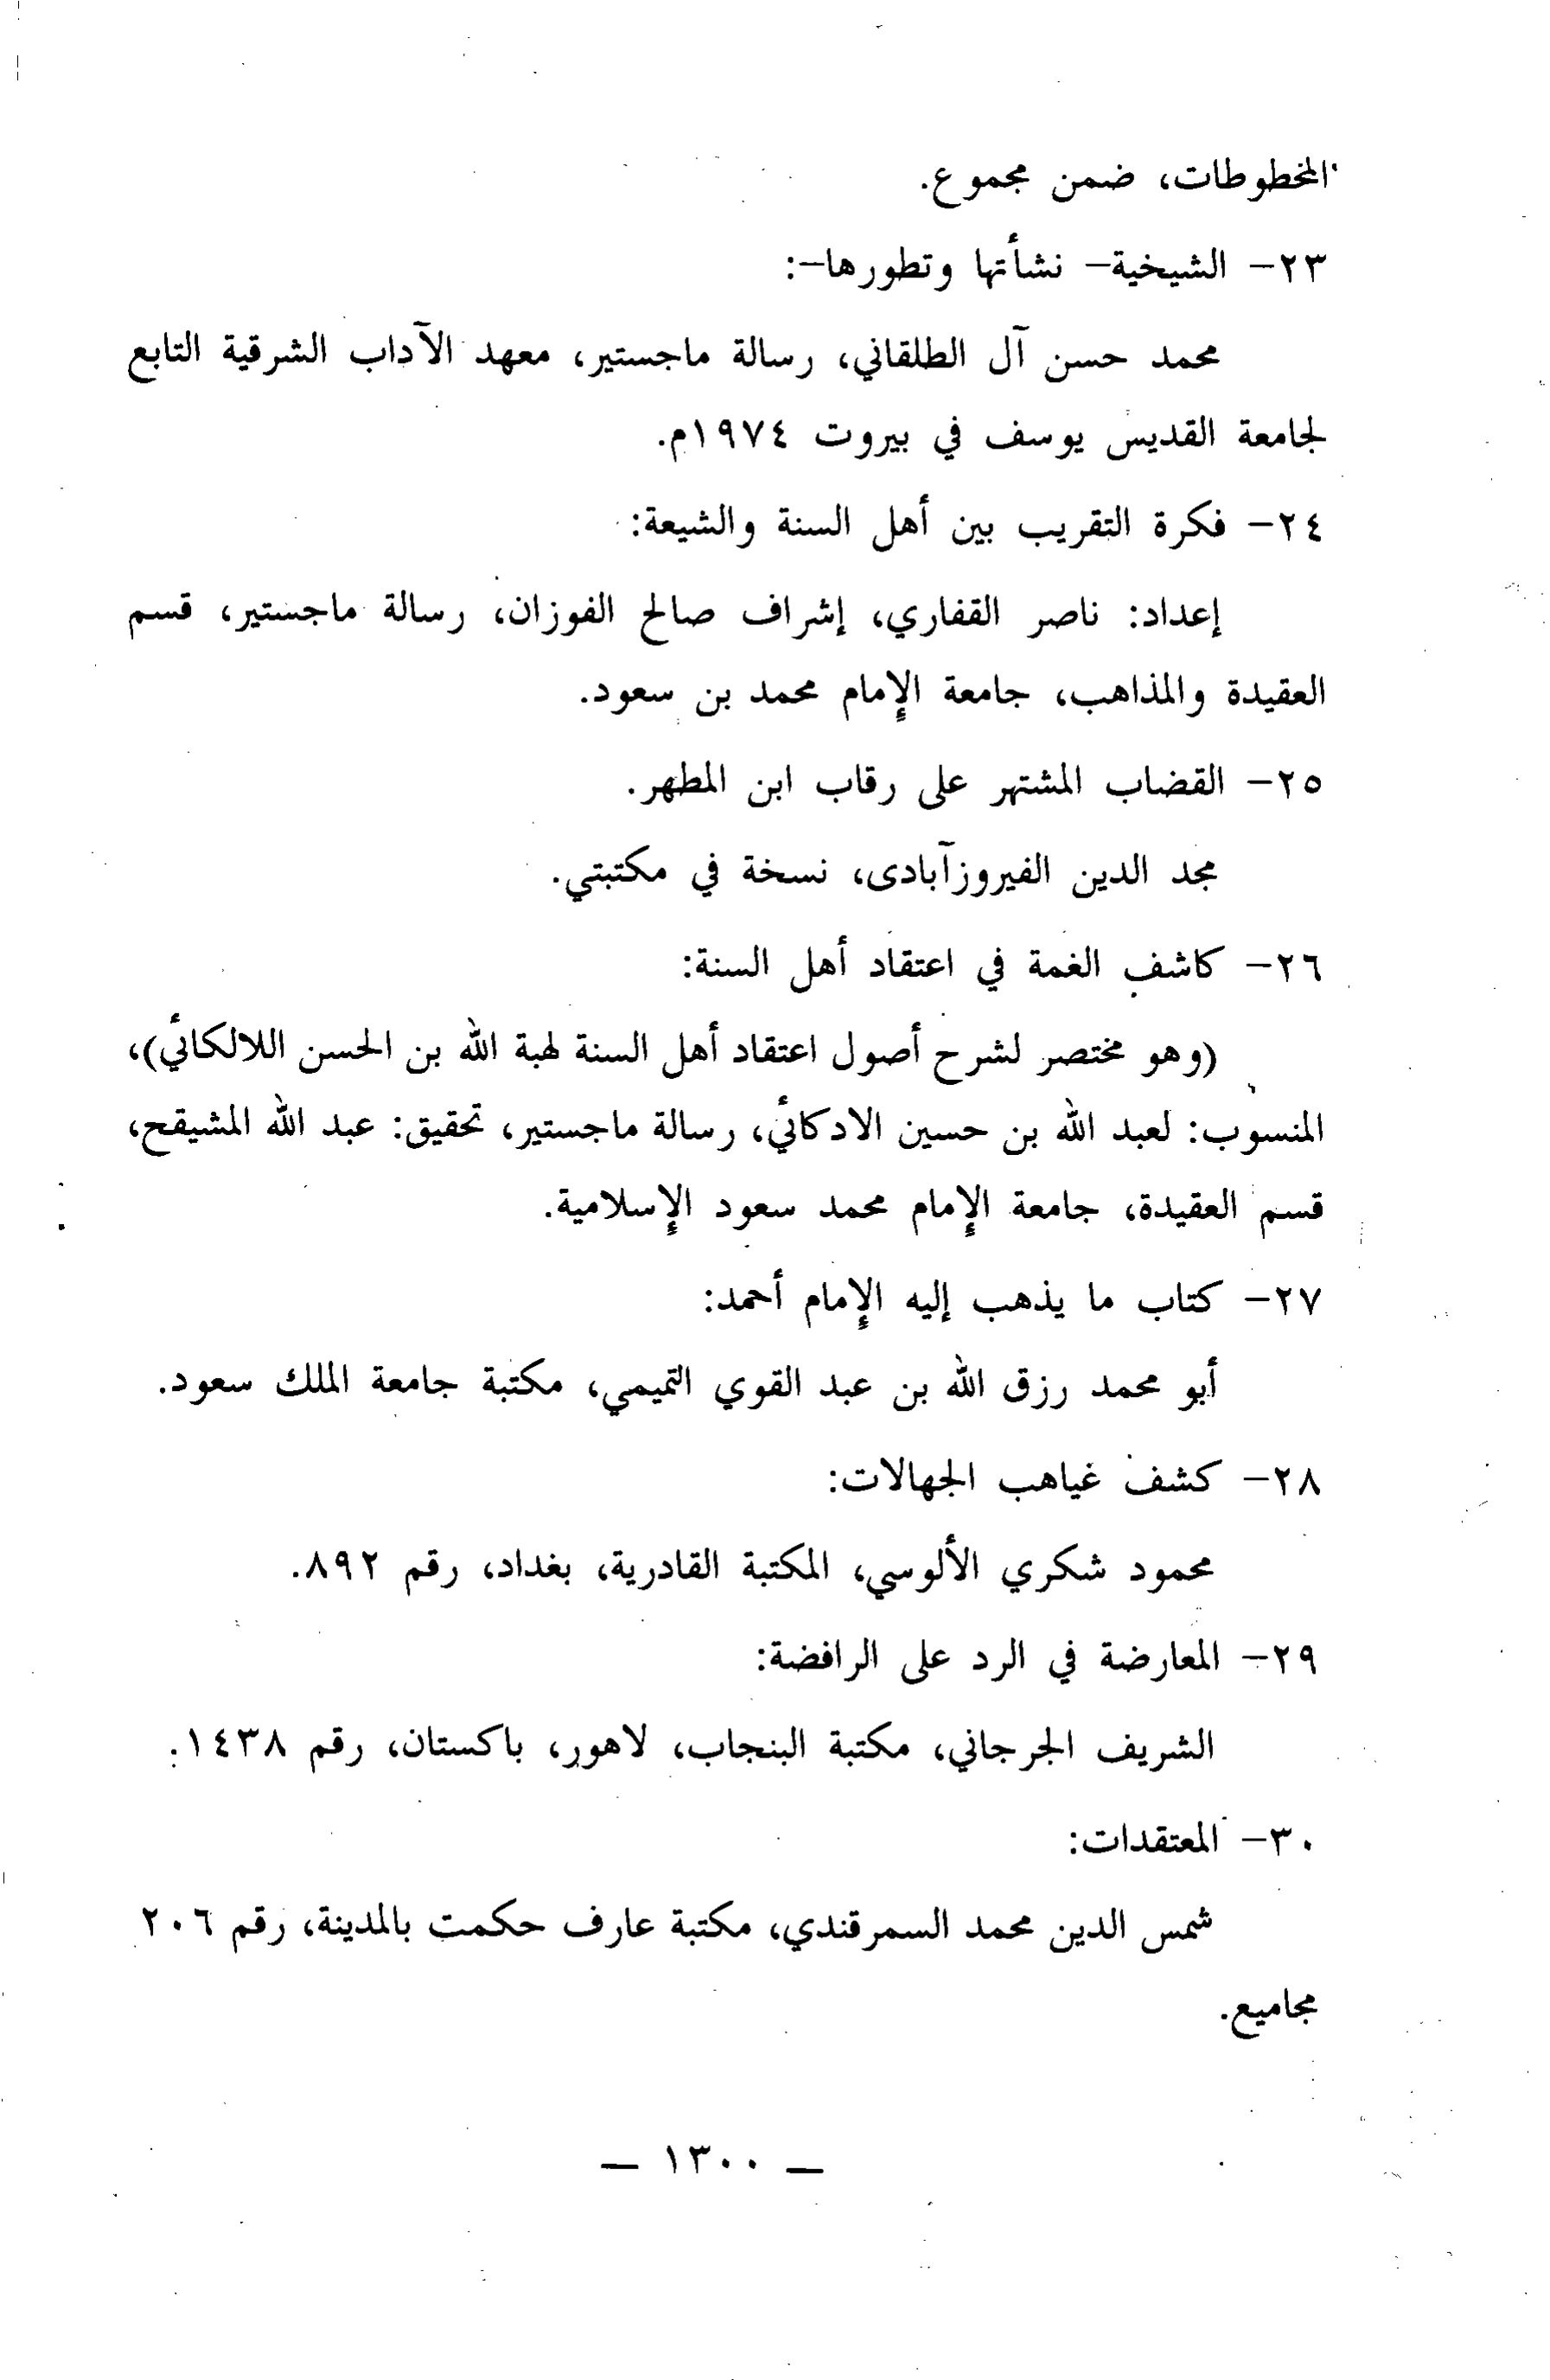 المخطوطات، ضمن مجموع.
٢٣- الشيخية- نشأتها وتطورها-:
محمد حسن آل الطلقاني، رسالة ماجستير، معهد الآداب الشرقية التابع
لجامعة القديس يوسف في بيروت ١٩٧٤م.
٢٤- فكرة التقريب بين أهل السنة والشيعة:
إعداد: ناصر القفاري، إشراف صالح الفوزان، رسالة ماجستير، قسم
العقيدة والمذاهب، جامعة الإمام محمد بن سعود.
٢٥- القضاب المشتهر على رقاب ابن المطهر.
مجد الدين الفيروزآبادى، نسخة في مكتبتي.
٢٦- كاشف الغمة في اعتقاد أهل السنة:
(وهو مختصر لشرح أصول اعتقاد أهل السنة لهبة الله بن الحسن اللالكائي)،
المنسوب: لعبد الله بن حسين الادكائي، رسالة ماجستير، تحقيق: عبد الله المشيقح،
قسم العقيدة، جامعة الإمام محمد سعود الإسلامية.
٢٧- كتاب ما يذهب إليه الإمام أحمد:
أبو محمد رزق الله بن عبد القوي التميمي، مكتبة جامعة الملك سعود.
٢٨- كشف غياهب الجهالات:
محمود شكري الألوسي، المكتبة القادرية، بغداد، رقم ٨٩٢.
٢٩- المعارضة في الرد على الرافضة:
الشريف الجرجاني، مكتبة البنجاب، لاهور، باكستان، رقم ١٤٣٨.
٣٠- المعتقدات:
شمس الدين محمد السمرقندي، مكتبة عارف حكمت بالمدينة، رقم ٢٠٦
مجاميع.
— ١٣٠٠ —